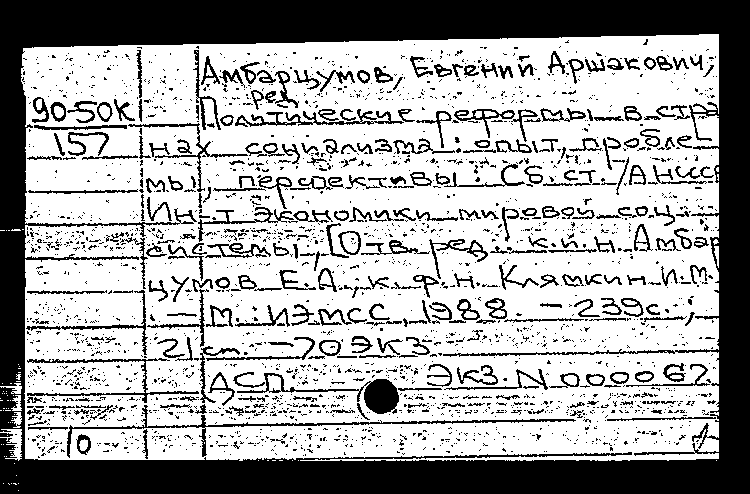 Амбарцумов, Евгений Аршакович,
ред
90-50К Политические реформы в стра
157 нах социализма: опыт, пробле-
мы, перспективы: Сб. ст. / АН СССР
Ин-т экономики мировой соц.
системы; [Отв. ред.: к.и.н. Амбар
цумов Е.А., к.ф.н. Клямкин И.М.
. — М.: ИЭМСС, 1988. — 239с.;
21 см. — 70 ЭКЗ
ДСП. ЭКЗ. N 000067
10